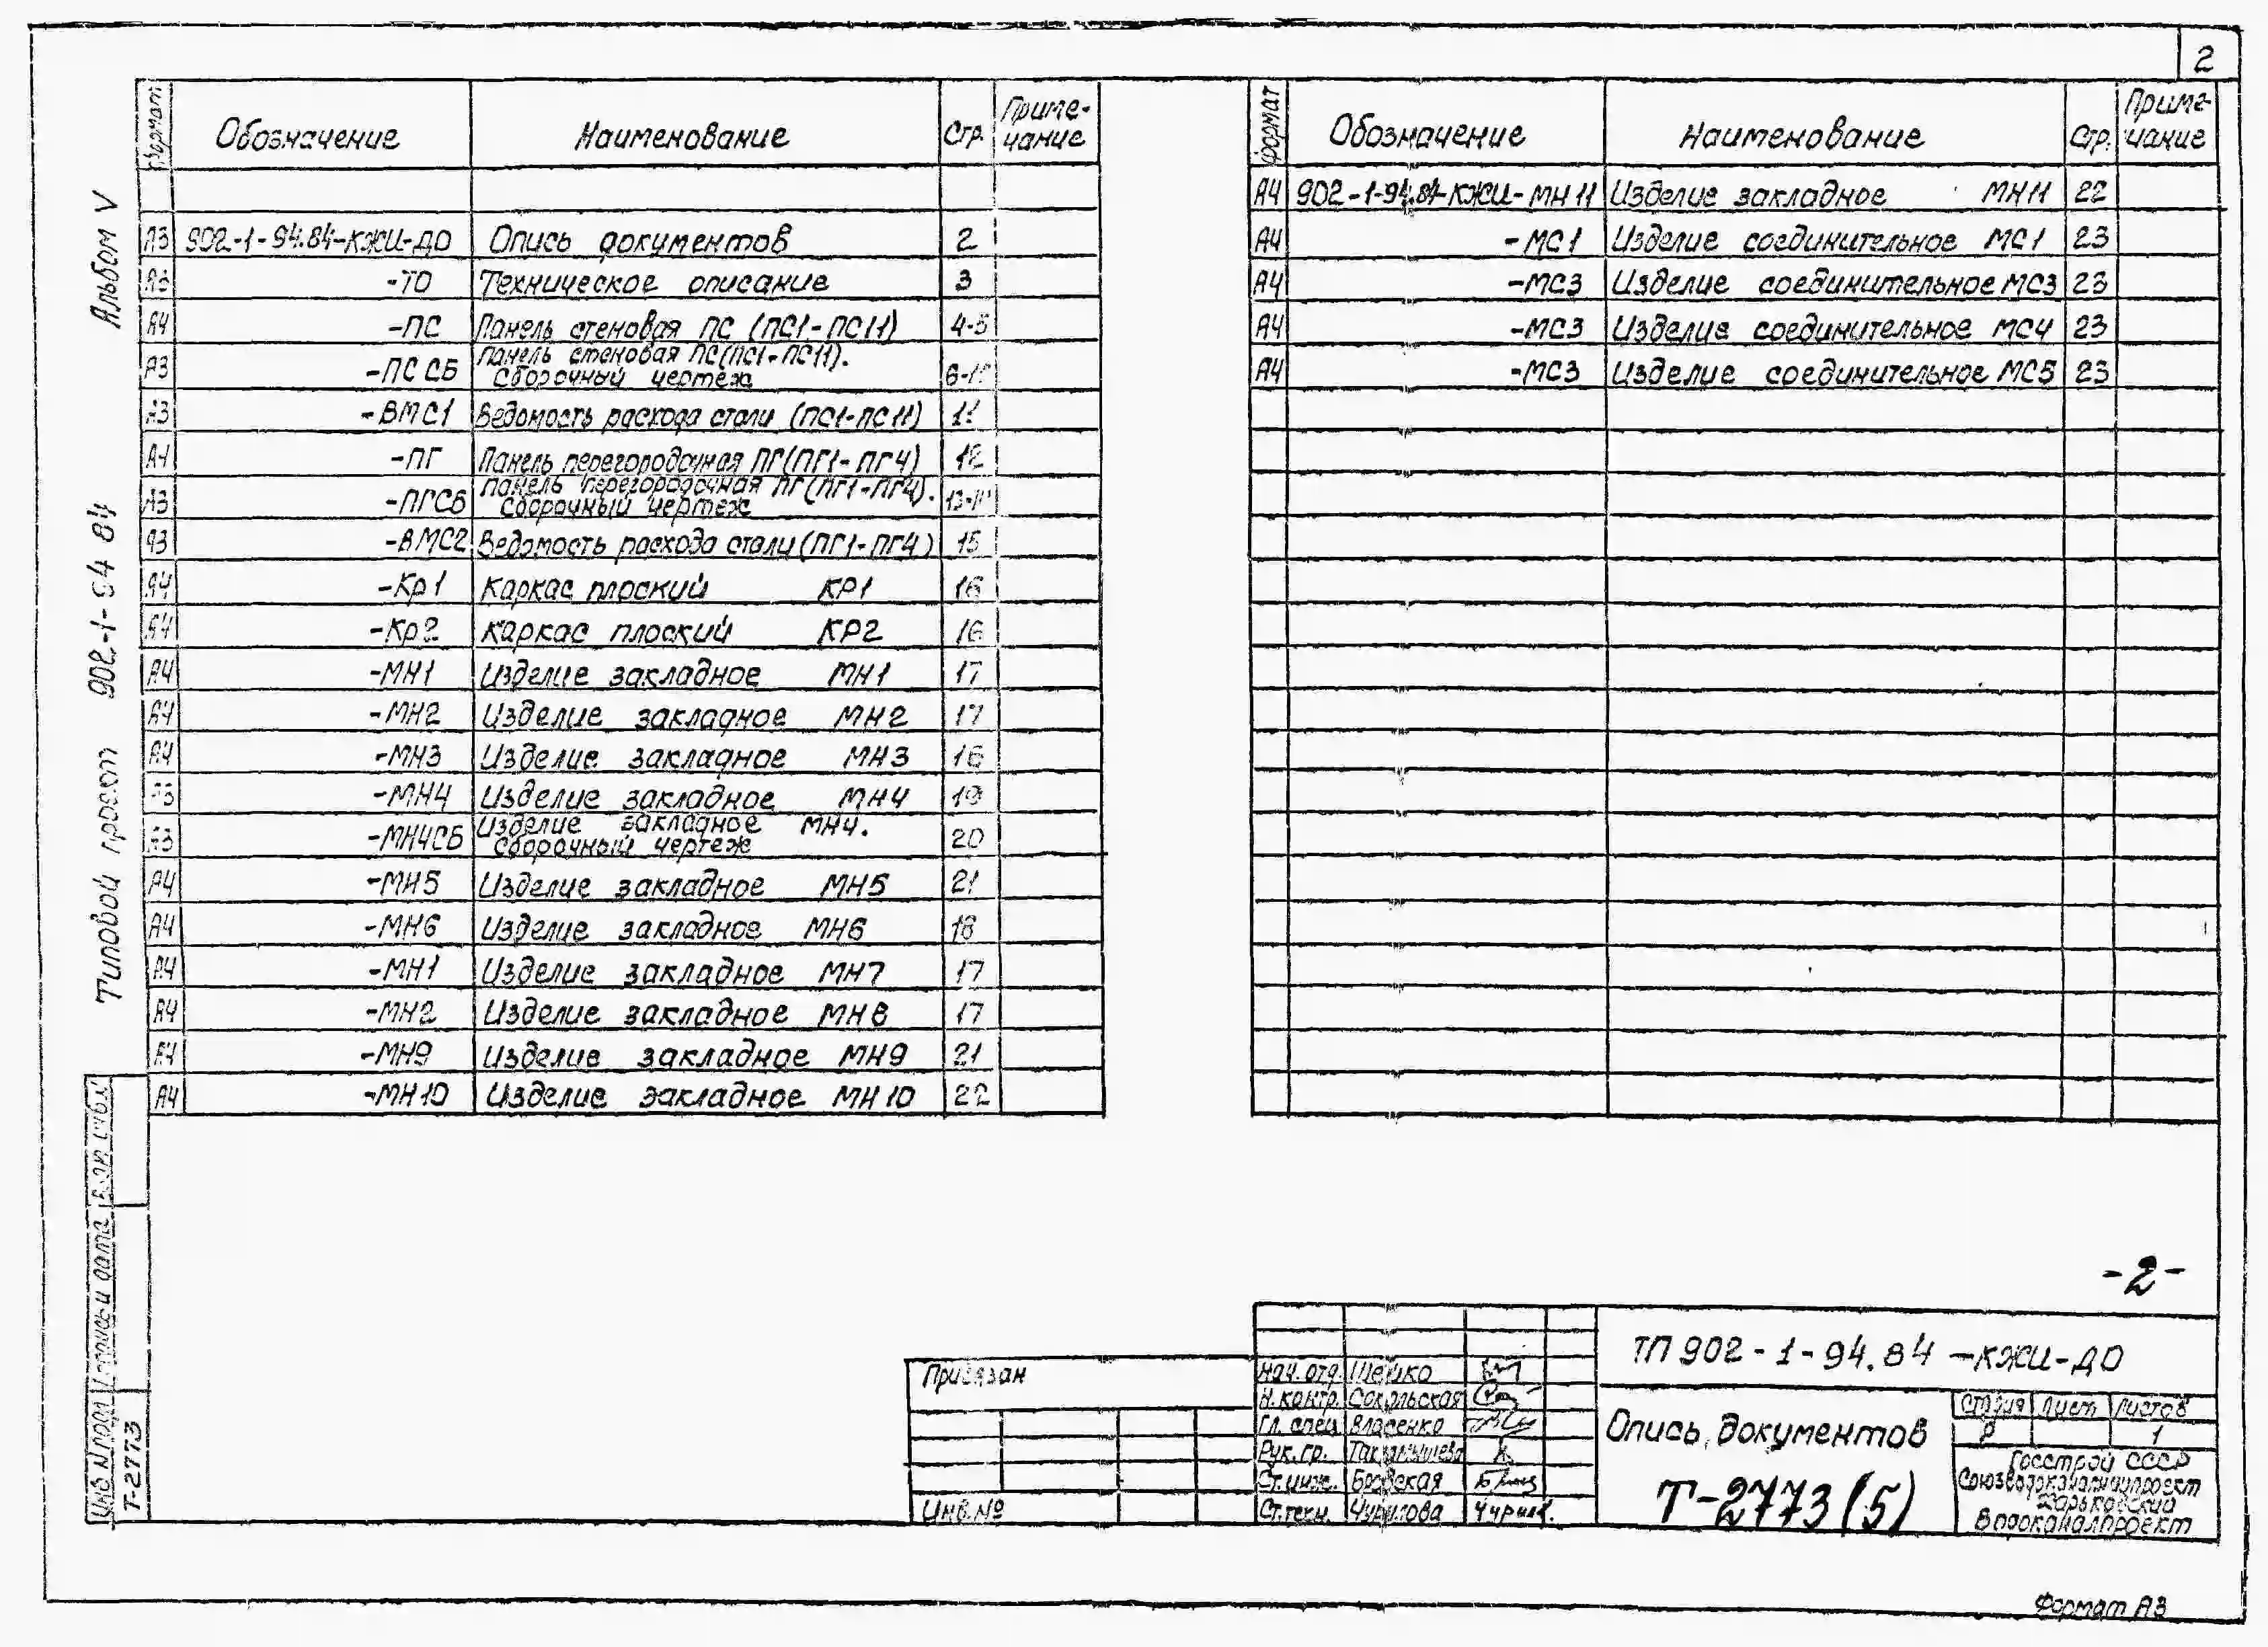 2
Альбом V
Типовой проект 902-1-94 84
Формат Обозначение Наименование Стр. Приме-
чание
А3 902-1-94.84-КЖИ-ДО Опись документов 2
А3 -ТО Техническое описание 3
А4 -ПС Панель стеновая ПС (ПС1-ПС11) 4-5
А3 -ПС СБ Панель стеновая ПС(ПС1-ПС11).
Сборочный чертеж
А3 -ВМС1 Ведомость расхода стали (ПС1-ПС11) 11
А4 -ПГ Панель перегородочная ПГ(ПГ1-ПГ4) 12
А3 -ПГСБ Панель перегородочная ПГ(ПГ1-ПГ4).
Сборочный чертеж
А3 -ВМС2 Ведомость расхода стали (ПГ1-ПГ4) 15
А4 -Кр1 Каркас плоский КР1 16
А4 -Кр2 Каркас плоский КР2 16
А4 -МН1 Изделие закладное МН1 17
А4 -МН2 Изделие закладное МН2 17
А4 -МН3 Изделие закладное МН3
А3 -МН4 Изделие закладное МН4 19
А3 -МН4СБ Изделие закладное МН4.
Сборочный чертеж 20
А4 -МН5 Изделие закладное МН5 21
А4 -МН6 Изделие закладное МН6 18
А4 -МН1 Изделие закладное МН7 17
А4 -МН2 Изделие закладное МН8 17
А4 -МН9 Изделие закладное МН9 21
А4 -МН10 Изделие закладное МН10 22
Формат Обозначение Наименование Стр. Приме-
чание
А4 902-1-94.84-КЖИ-МН11 Изделие закладное МН11 22
А4 -МС1 Изделие соединительное МС1 23
А4 -МС3 Изделие соединительное МС3 23
А4 -МС3 Изделие соединительное МС4 23
А4 -МС3 Изделие соединительное МС5 23
-2-
Инв N подл Подпись и дата
Т-2773
Привязан
Инв.№
Нач. отд. Шейко
Н. контр. Сокольская
Гл. спец Власенко
Рук. гр.
Ст. инж. Бровская
Ст. техн. Чурилова
ТП 902-1-94.84 -КЖИ-ДО
Опись документов
Т-2773(5)
Стадия Лист Листов
Р 1
Госстрой СССР
Союзводоканалниипроект
Харьковский
Водоканалпроект
Формат А3